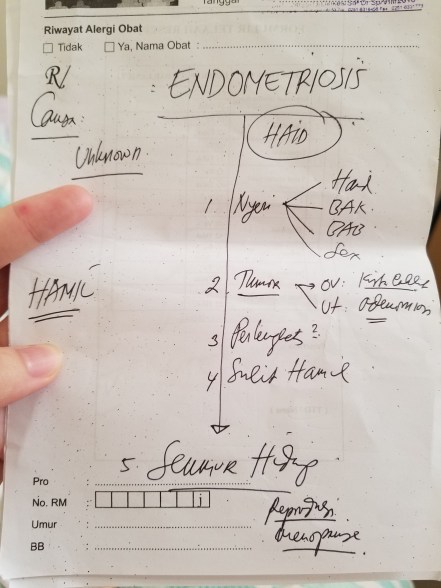 Tanggal
Riwayat Alergi Obat
Tidak Ya, Nama Obat :
R/ : ENDOMETRIOSIS
Causa :
HAID
Unknown
1 Nyeri Haid
BAK
BAB
Sex
HAMIL
2 Tumor OV: Kista
Ut: adenomiosis
3 Perlengketan ?
4 Sulit Hamil
5. Seumur Hidup
Pro
No. RM
Reproduksi
Umur
menopause
BB